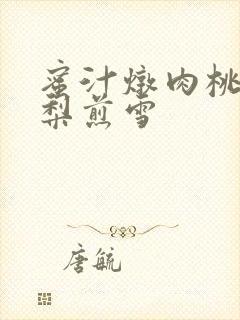 蜜汁燉肉桃
梨煎雪
唐毓